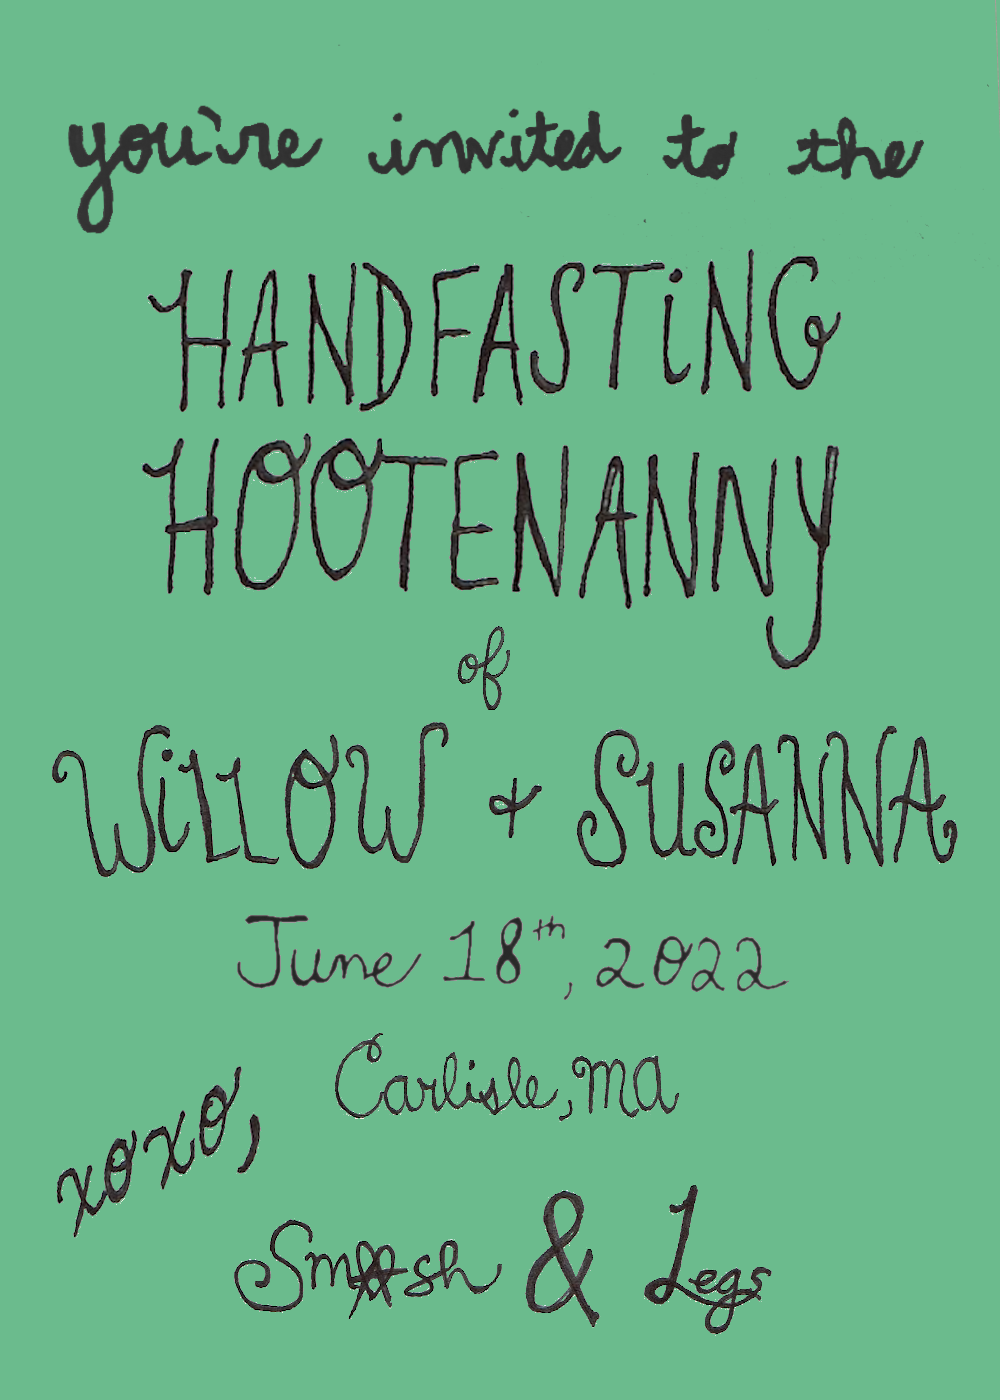 you're invited to the
HANDFASTiNG
HOOTENANNY
of
WiLLOW & SUSANNA
June 18th, 2022
Carlisle, MA
xoxo,
Smash & Legs